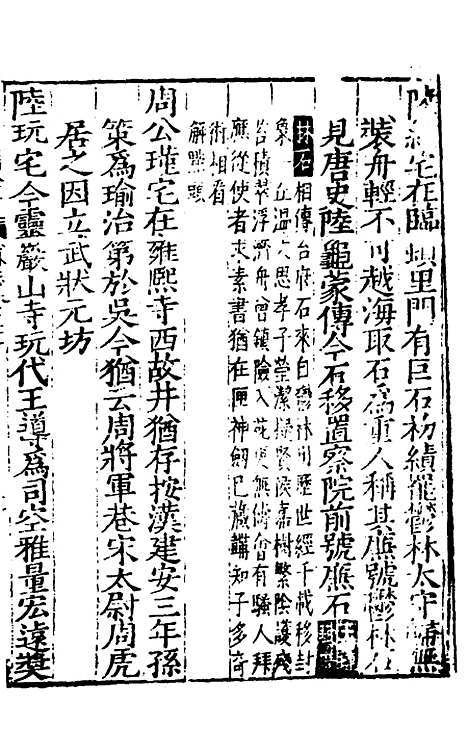 陸績宅在臨頓里門有巨石初績罷鬱林太守歸無
裝舟輕不可越海取石爲重人稱其廉號鬱林石
見唐史陸龜蒙傳今石移置察院前號廉石
林石
相傳台府石來自鬱林川歷世經千載移封
象一丘温大思孝子瑩潔擬賢侯嘉樹繁陰護殘
苔積翠浮濟舟曾鎮險入苑更無儔曾有騷人拜
應從使者求素書猶在匣神劒已藏韝知子多奇
術相看
解點頭
周公瑾宅在雍熙寺西故井猶存按漢建安三年孫
策爲瑜治第於吳今猶云周將軍巷宋太尉周虎
居之因立武狀元坊
陸玩宅今靈巖山寺玩代王導爲司空雅量宏遠奬